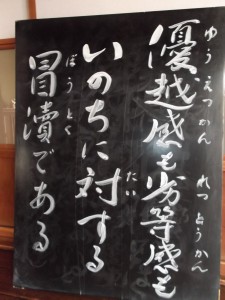 優越感も劣等感も
ゆうえつかん れっとうかん
いのちに対する
たい
冒瀆である
ぼうとく